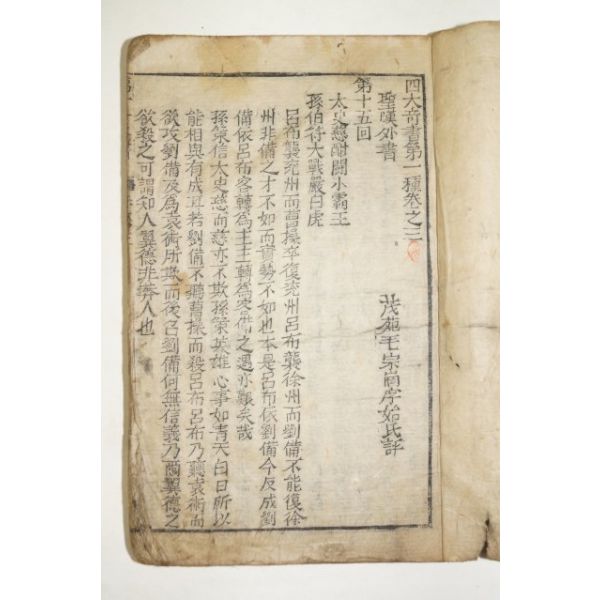 四大奇書第一種卷之三
聖嘆外書
茂苑毛宗崗序始氏評
第十五回
太史慈酣鬪小霸王
孫伯符大戰嚴白虎
呂布襲兗州而曹操卒復兗州呂布襲徐州而劉備不能復徐
州非備之才不如而實勢不如也本是呂布依劉備今反成劉
備依呂布客轉爲主主轉爲客備之遇亦艱矣哉
孫策信太史慈而慈亦不欺孫策英雄心事如青天白日所以
能相與有成耳若劉備不聽曹操而殺呂布呂布乃聽袁術而
欲攻劉備及爲袁術所欺而後召劉備何無信義乃爾翼德之
欲殺之可謂知人翼德非莽人也